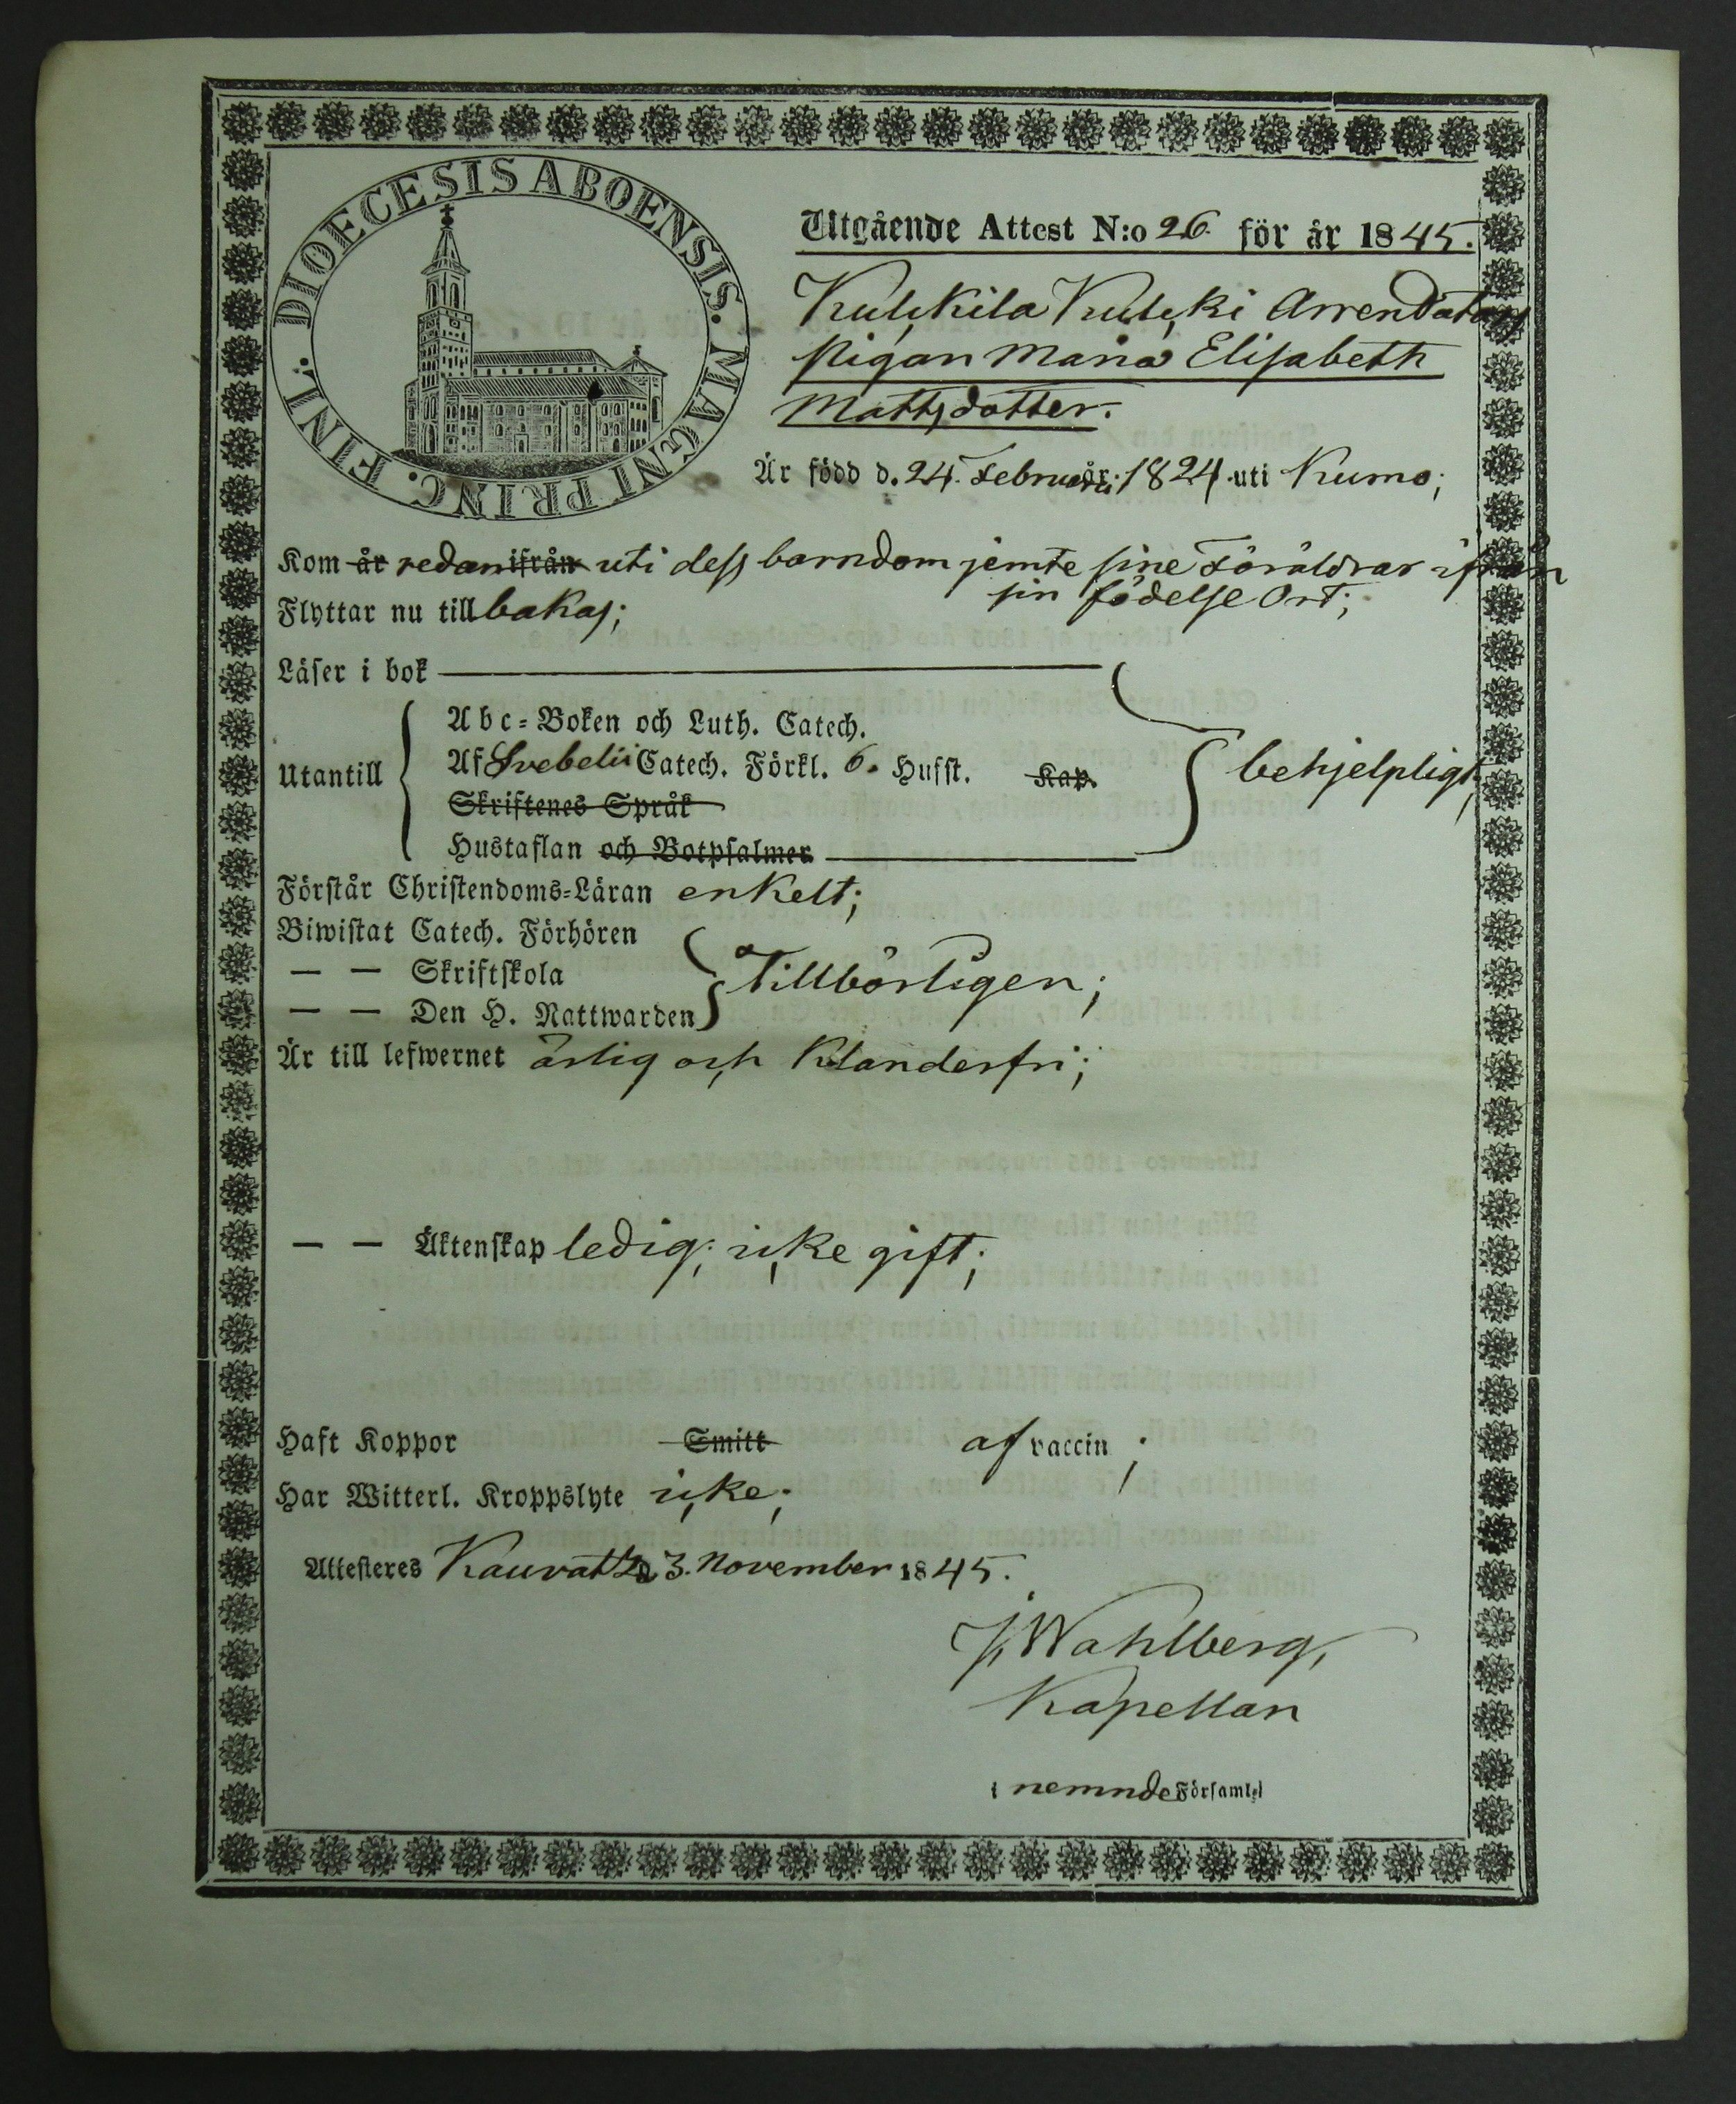 DIOECESIS ABOENSIS. MAGNI PRINC. FINL.
Utgående Attest N:o 26. för år 1845.
Kulkila Kulki Arrendators
Pigan Maria Elisabeth
Mattsdotter.
Är född d. 24. Februarii 1824 uti Kumo;
Kom år redan ifrån uti dess barndom jemte sine Föräldrar ifrån
sin födelse Ort;
Flyttar nu till bakas;
Läser i bok
Utantill
Abc-Boken och Luth. Catech.
Af Svebelii Catech. Förkl. 6. Hufst. Kap.
behjelpligt;
Skriftenes Språk
Hustaflan och Botpsalmer
Förstår Christendoms-Läran enkelt;
Biwistat Catech. Förhören
— — Skriftskola
Tillbörligen;
— — Den H. Nattwarden
Är till lefwernet ärlig och Klanderfri;
— — Äktenskap ledig; icke gift;
Haft Koppor Smitt af vaccin;
Har Witterl. Kroppslyte icke;
Attesteres Kauvatz d 3. November 1845.
J. Wahlberg,
Kapellan
i nemnde Församl.